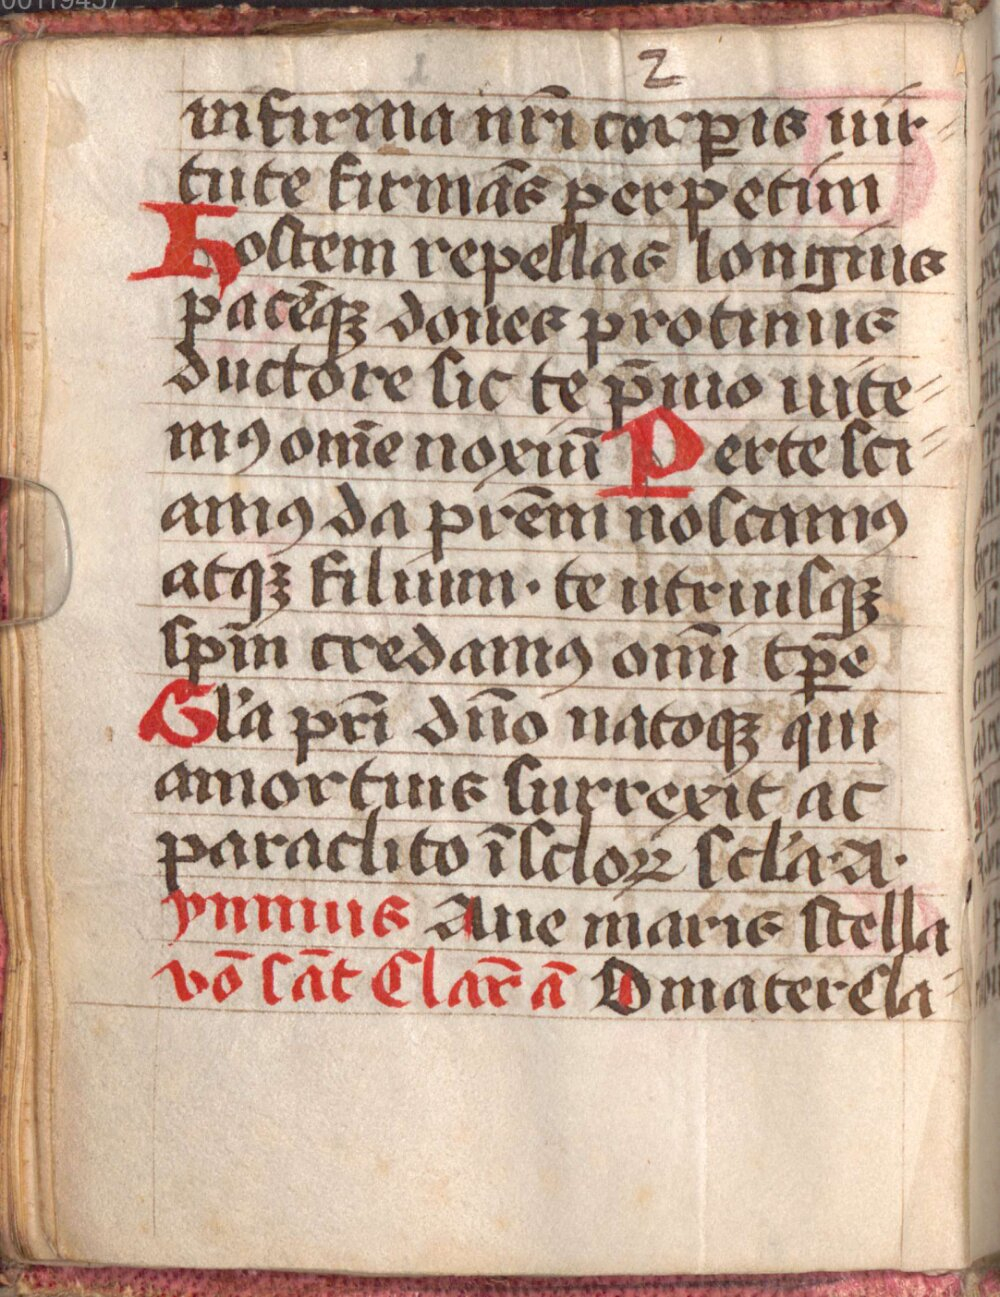 00119457
1 2
infirma nr̄i corp̲is uir⸗
tute firmās perpetim
Hostem repellas longius
pacēqꝫ dones protinus
ductore sic te p̄uio uite⸗
mꝰ om̄e noxiū Perte sci⸗
amꝰ da pr̄em noscamꝰ
atqꝫ filium · te utriusqꝫ
sp̄m credamꝰ om̄i tp̄e
Gl'a pr̄i dn̄o natoqꝫ qui
amortuis surrexit ac
paraclito ī sclorꝝ scl'a · A ·
ynmus Aue maris stella
vō sāt Clar̄a ā O mater Cla⸗